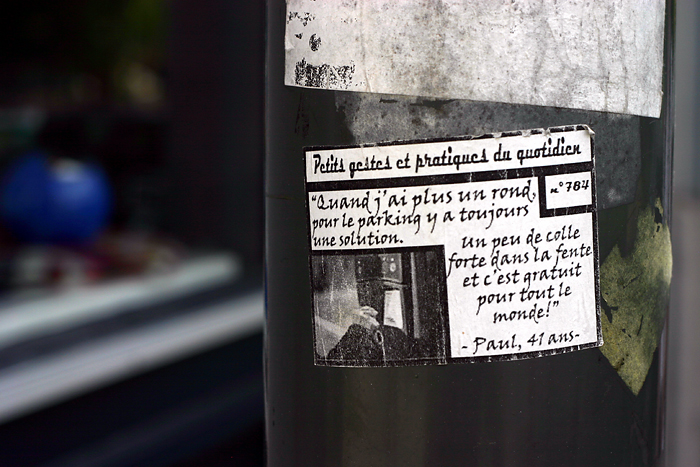 Petits gestes et pratiques du quotidien
n°784
"Quand j'ai plus un rond,
pour le parking y a toujours
une solution.
Un peu de colle
forte dans la fente
et c'est gratuit
pour tout le
monde!"
- Paul, 41 ans-